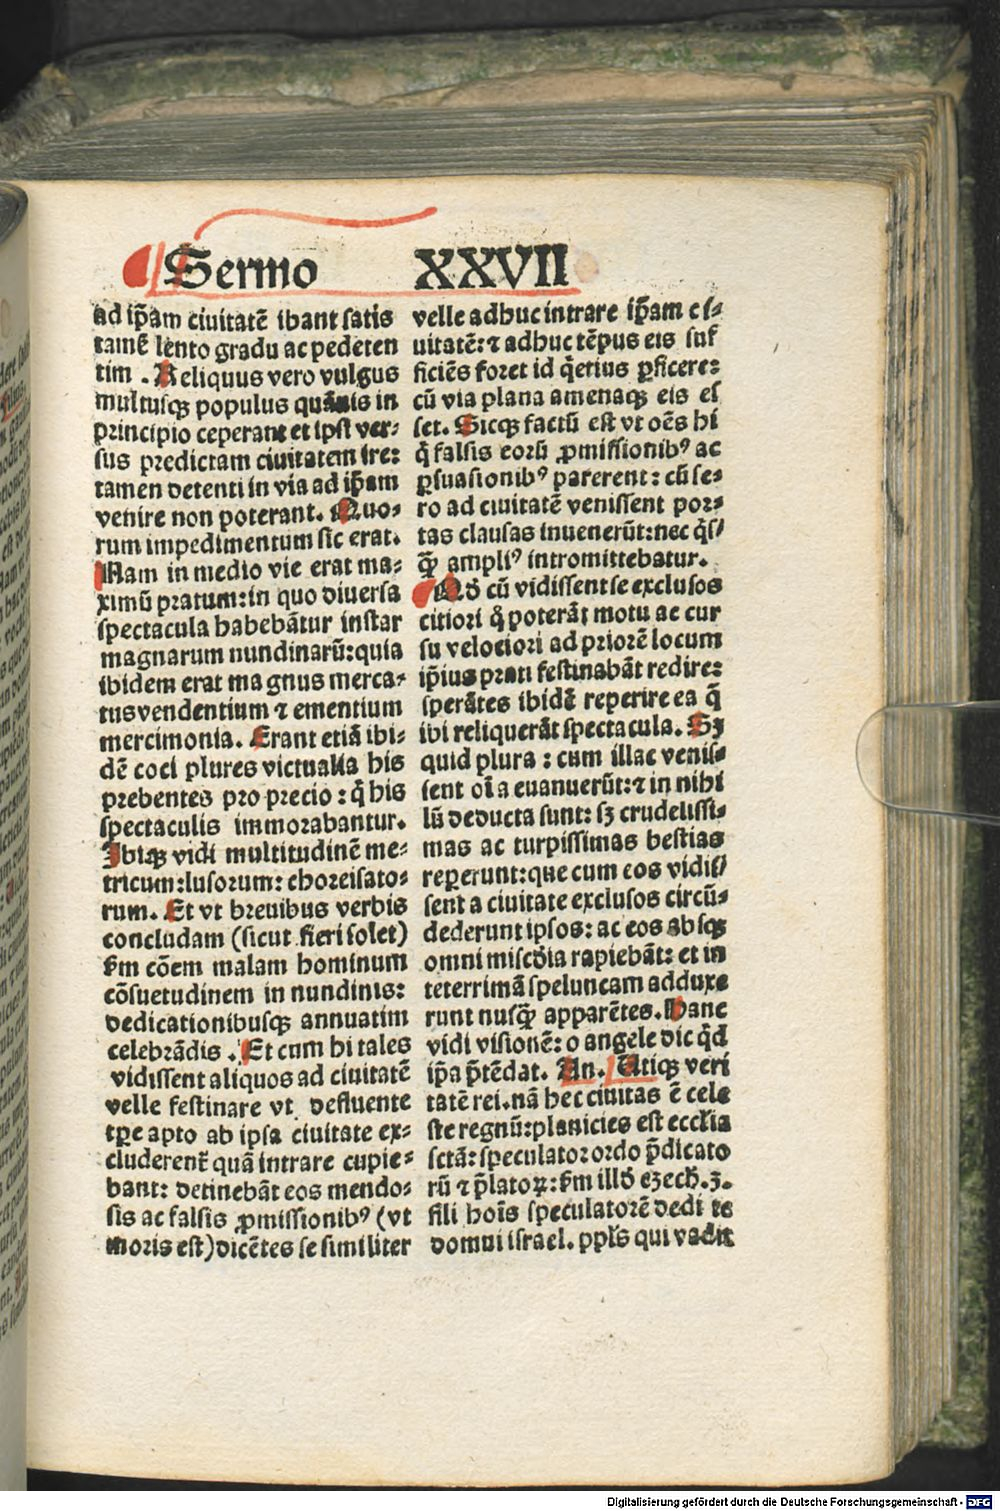 Sermo XXVII
ad ip̄am ciuitatē ibant satis
tamē lento gradu ac pedeten
tim . Reliquus vero vulgus
multusqꝫ populus quāuis in
principio ceperant et ipsi ver⸗
sus predictam ciuitatem ire:
tamen detenti in via ad ip̄am
venire non poterant. Quo⸗
rum impedimentum sic erat.
Nam in medio vie erat ma⸗
ximū pratum: in quo diuersa
spectacula habebātur instar
magnarum nundinarū: quia
ibidem erat magnus merca⸗
tus vendentium ⁊ ementium
mercimonia. Erant etiā ibi⸗
dē coci plures victualia his
prebentes pro precio: q̄ his
spectaculis immorabantur.
Ibiqꝫ vidi multitudinē me⸗
tricum: lusorum: choreisato⸗
rum. Et vt breuibus verbis
concludam (sicut fieri solet)
ẜm cōem malam hominum
cōsuetudinem in nundinis:
dedicationibusqꝫ annuatim
celebrādis . Et cum hi tales
vidissent aliquos ad ciuitatē
velle festinare vt defluente
tꝑe apto ab ipsa ciuitate ex⸗
cluderent᷑ quā intrare cupie⸗
bant: detinebāt eos mendo⸗
sis ac falsis ꝓmissionibꝰ (vt
moris est) dicētes se similiter
velle adhuc intrare ip̄am ci⸗
uitatē: ⁊ adhuc tēpus eis suf
ficiēs foret id q̄etius ꝑficere:
cū via plana amenaqꝫ eis es
set. Sicqꝫ factū est vt oēs hi
q̄ falsis eorū ꝓmissionibꝰ ac
ꝑsuasionibꝰ parerent: cū se⸗
ro ad ciuitatē venissent por⸗
tas clausas inuenerūt: nec q̄s⸗
q̄ꝫ ampliꝰ intromittebatur.
Qd̄ cū vidissent se exclusos
citiori q̄ poterāt motu ac cur
su velociori ad priorē locum
ip̄ius prati festinabāt redire:
sperātes ibidē reperire ea q̄
ibi reliquerāt spectacula. Sꝫ
quid plura : cum illac venis⸗
sent oīa euanuerūt: ⁊ in nihi
lū deducta sunt: sꝫ crudelissi⸗
mas ac turpissimas bestias
reperunt: que cum eos vidis⸗
sent a ciuitate exclusos circū⸗
dederunt ipsos: ac eos absqꝫ
omni misc̄dia rapiebāt: et in
teterrimā speluncam adduxe
runt nusq̄ꝫ apparētes. Hanc
vidi visionē: o angele dic qd̄
ip̄a p̄tēdat. An. Utiqꝫ veri
tatē rei. nā hec ciuitas ē cele
ste regnū: planicies est eccl̄ia
sctā: speculator ordo p̄dicato
rū ⁊ p̄latoꝝ: ẜm illd̄ ezech. 3.
fili hoīs speculatorē dedi te
domui israel. ppl̄s qui vadit
Digitalisierung gefördert durch die Deutsche Forschungsgemeinschaft - DFG